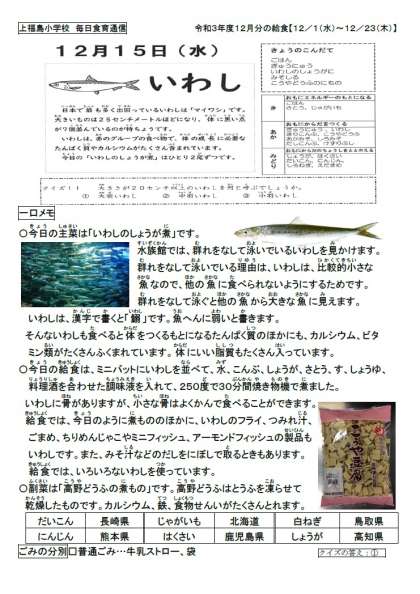 上福島小学校　毎日食育通信
令和3年度12月分の給食【12／1(水)～12／23(木)】
12月15日（水）
いわし
日本で最も多く出回っているいわしは「マイワシ」です。
大きいものは25センチメートルほどになり、体に黒い点
が7個並んでいるのが特ちょうです。
いわしは、赤のグループの食べ物で、体の成長に必要な
たんぱく質やカルシウムがたくさん含まれています。
今日の「いわしのしょうが煮」はひとり2尾ずつです。
きょうのこんだて
ごはん
ぎゅうにゅう
いわしのしょうがに
みそしる
こうやどうふのにもの
おもにエネルギーのもとになる
き
さとう、じゃがいも
おもにからだをつくる
あか
おもにからだのちょうしをととのえる
みどり
クイズ！！　大きさが20センチ以上のいわしを何と呼ぶでしょうか。
①　大羽いわし　②　中羽いわし　③　小羽いわし
一口メモ
○今日の主菜は「いわしのしょうが煮」です。
水族館では、群れをなして泳いでいるいわしを見かけます。
群れをなして泳いでいる理由は、いわしは、比較的小さな
魚なので、他の魚に食べられないようにするためです。
群れをなして泳ぐと他の魚から大きな魚に見えます。
いわしは、漢字で書くと「鰯」です。魚へんに弱いと書きます。
そんないわしも食べると体をつくるもとになるたんぱく質のほかにも、カルシウム、ビタ
ミン類がたくさんふくまれています。体にいい脂質もたくさん入っています。
○今日の給食は、ミニバットにいわしを並べて、水、こんぶ、しょうが、さとう、す、しょうゆ、
料理酒を合わせた調味液を入れて、250度で30分間焼き物機で煮ました。
いわしに骨がありますが、小さな骨はよくかんで食べることができます。
給食では、今日のように煮もののほかに、いわしのフライ、つみれ汁、
ごまめ、ちりめんじゃこやミニフィッシュ、アーモンドフィッシュの製品も
いわしです。また、みそ汁などのだしをにぼしで取るときもあります。
給食では、いろいろないわしを使っています。
○副菜は「高野どうふの煮もの」です。高野どうふはとうふを凍らせて
乾燥したものです。カルシウム、鉄、食物せんいがたくさんとれます。
だいこん　長崎県　じゃがいも　北海道　白ねぎ　鳥取県
にんじん　熊本県　はくさい　鹿児島県　しょうが　高知県
ごみの分別　□普通ごみ…牛乳ストロー、袋
クイズの答え：①